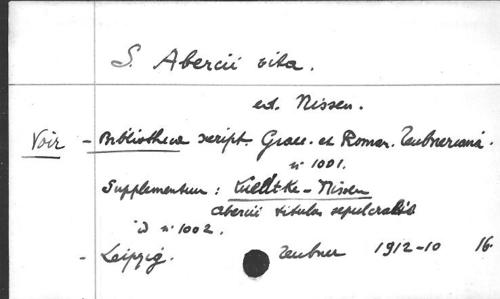 S. Abercii vita.
ed. Nissen.
Voir - Bibliotheca script. Graec. et Roman. Teubneriana.
n° 1001.
Supplementum: Lüdtke - Nissen
Abercii titulus sepulcralis
id n° 1002.
- Leipzig. Teubner 1912-10 16